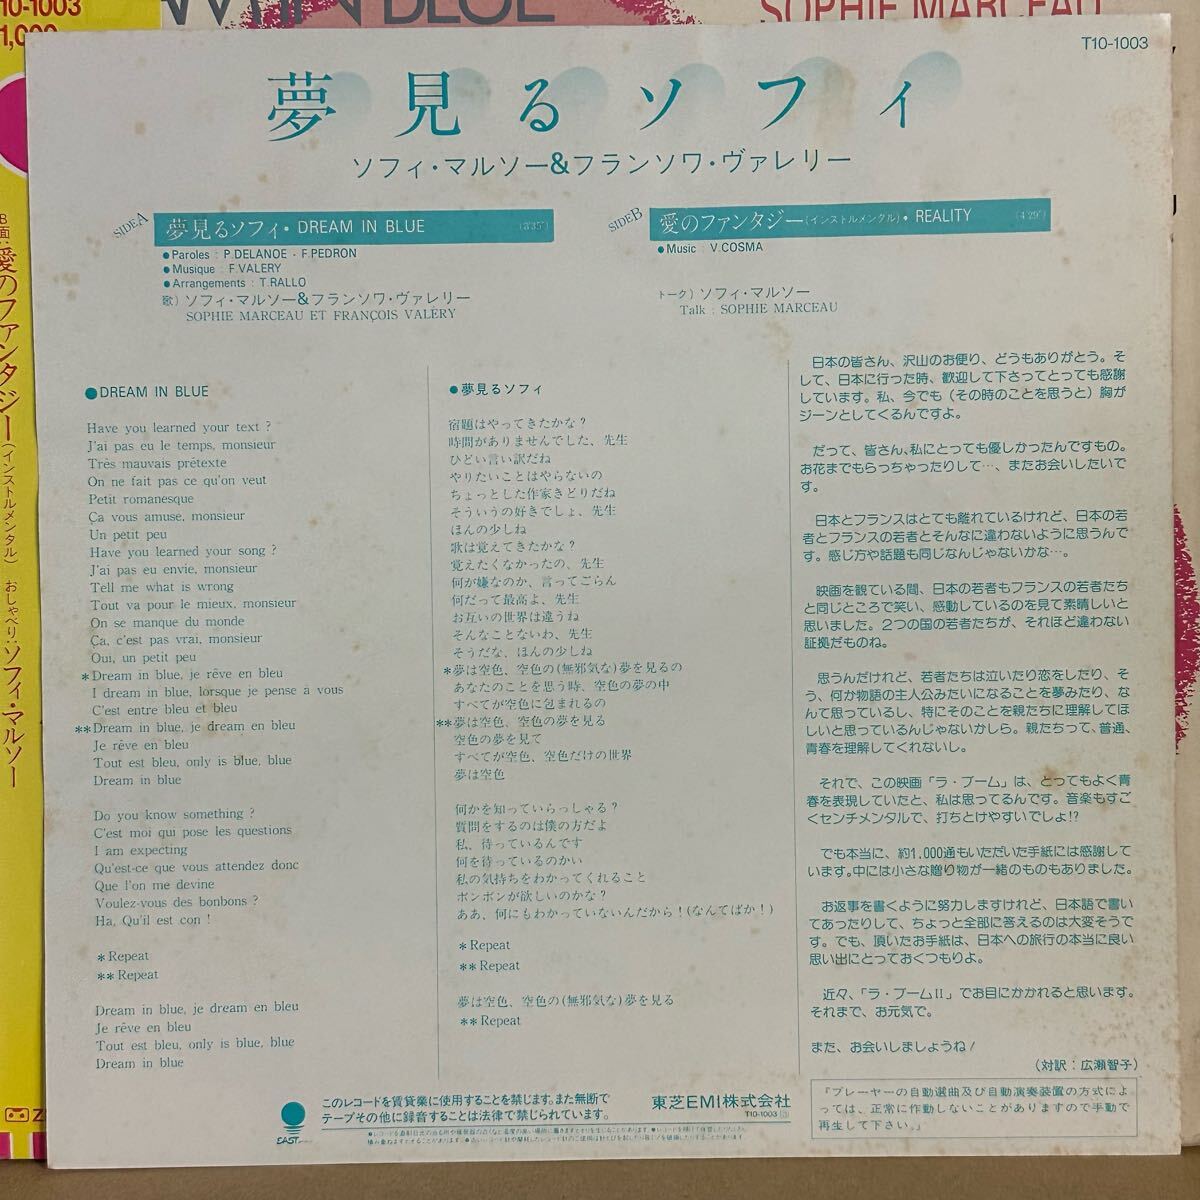 10-1003
1,000
SOPHIE MARCEAU
T10-1003
夢見るソフィ
ソフィ・マルソー&フランソワ・ヴァレリー
SIDE A
夢見るソフィ・DREAM IN BLUE (3'35")
●Paroles : P.DELANOE - F.PEDRON
●Musique : F.VALERY
●Arrangements : T.RALLO
歌) ソフィ・マルソー&フランソワ・ヴァレリー
SOPHIE MARCEAU ET FRANÇOIS VALÉRY
SIDE B
愛のファンタジー(インストルメンタル)・REALITY (4'29")
●Music : V.COSMA
トーク) ソフィ・マルソー
Talk : SOPHIE MARCEAU
●DREAM IN BLUE
Have you learned your text ?
J'ai pas eu le temps, monsieur
Très mauvais prétexte
On ne fait pas ce qu'on veut
Petit romanesque
Ça vous amuse, monsieur
Un petit peu
Have you learned your song ?
J'ai pas eu envie, monsieur
Tell me what is wrong
Tout va pour le mieux, monsieur
On se manque du monde
Ça, c'est pas vrai, monsieur
Oui, un petit peu
*Dream in blue, je rêve en bleu
I dream in blue, lorsque je pense à vous
C'est entre bleu et bleu
**Dream in blue, je dream en bleu
Je rêve en bleu
Tout est bleu, only is blue, blue
Dream in blue
Do you know something ?
C'est moi qui pose les questions
I am expecting
Qu'est-ce que vous attendez donc
Que l'on me devine
Voulez-vous des bonbons ?
Ha, Qu'il est con !
*Repeat
**Repeat
Dream in blue, je dream en bleu
Je rêve en bleu
Tout est bleu, only is blue, blue
Dream in blue
●夢見るソフィ
宿題はやってきたかな?
時間がありませんでした、先生
ひどい言い訳だね
やりたいことはやらないの
ちょっとした作家きどりだね
そういうの好きでしょ、先生
ほんの少しね
歌は覚えてきたかな?
覚えたくなかったの、先生
何が嫌なのか、言ってごらん
何だって最高よ、先生
お互いの世界は違うね
そんなことないわ、先生
そうだな、ほんの少しね
*夢は空色、空色の(無邪気な)夢を見るの
あなたのことを思う時、空色の夢の中
すべてが空色に包まれるの
**夢は空色、空色の夢を見る
空色の夢を見て
すべてが空色、空色だけの世界
夢は空色
何かを知っていらっしゃる?
質問をするのは僕の方だよ
私、待っているんです
何を待っているのかい
私の気持ちをわかってくれること
ボンボンが欲しいのかな?
ああ、何にもわかっていないんだから!(なんてばか!)
*Repeat
**Repeat
夢は空色、空色の(無邪気な)夢を見る
**Repeat
日本の皆さん、沢山のお便り、どうもありがとう。そ
して、日本に行った時、歓迎して下さってとっても感謝
しています。私、今でも(その時のことを思うと)胸が
ジーンとしてくるんですよ。
だって、皆さん、私にとっても優しかったんですもの。
お花までもらっちゃったりして…、またお会いしたいで
す。
日本とフランスはとても離れているけれど、日本の若
者とフランスの若者とそんなに違わないように思うんで
す。感じ方や話題も同じなんじゃないかな…。
映画を観ている間、日本の若者もフランスの若者たち
と同じところで笑い、感動しているのを見て素晴しいと
思いました。2つの国の若者たちが、それほど違わない
証拠だものね。
思うんだけれど、若者たちは泣いたり恋をしたり、そ
う、何か物語の主人公みたいになることを夢みたり、な
んて思っているし、特にそのことを親たちに理解してほ
しいと思っているんじゃないかしら。親たちって、普通、
青春を理解してくれないし。
それで、この映画「ラ・ブーム」は、とってもよく青
春を表現していたと、私は思ってるんです。音楽もすご
くセンチメンタルで、打ちとけやすいでしょ!?
でも本当に、約1,000通もいただいた手紙には感謝して
います。中には小さな贈り物が一緒のものもありました。
お返事を書くように努力しますけれど、日本語で書い
てあったりして、ちょっと全部に答えるのは大変そうで
す。でも、頂いたお手紙は、日本への旅行の本当に良い
思い出にとっておくつもりよ。
近々、「ラ・ブームII」でお目にかかれると思います。
それまで、お元気で。
また、お会いしましょうね!
(対訳:広瀬智子)
EAST
このレコードを賃貸業に使用することを禁じます。また無断で
テープその他に録音することは法律で禁じられています。
東芝EMI株式会社
T10-1003
「プレーヤーの自動選曲及び自動演奏装置の方式によ
っては、正常に作動しないことがありますので手動で
再生して下さい。」
B面:愛のファンタジー(インストルメンタル) おしゃべり:ソフィ・マルソー